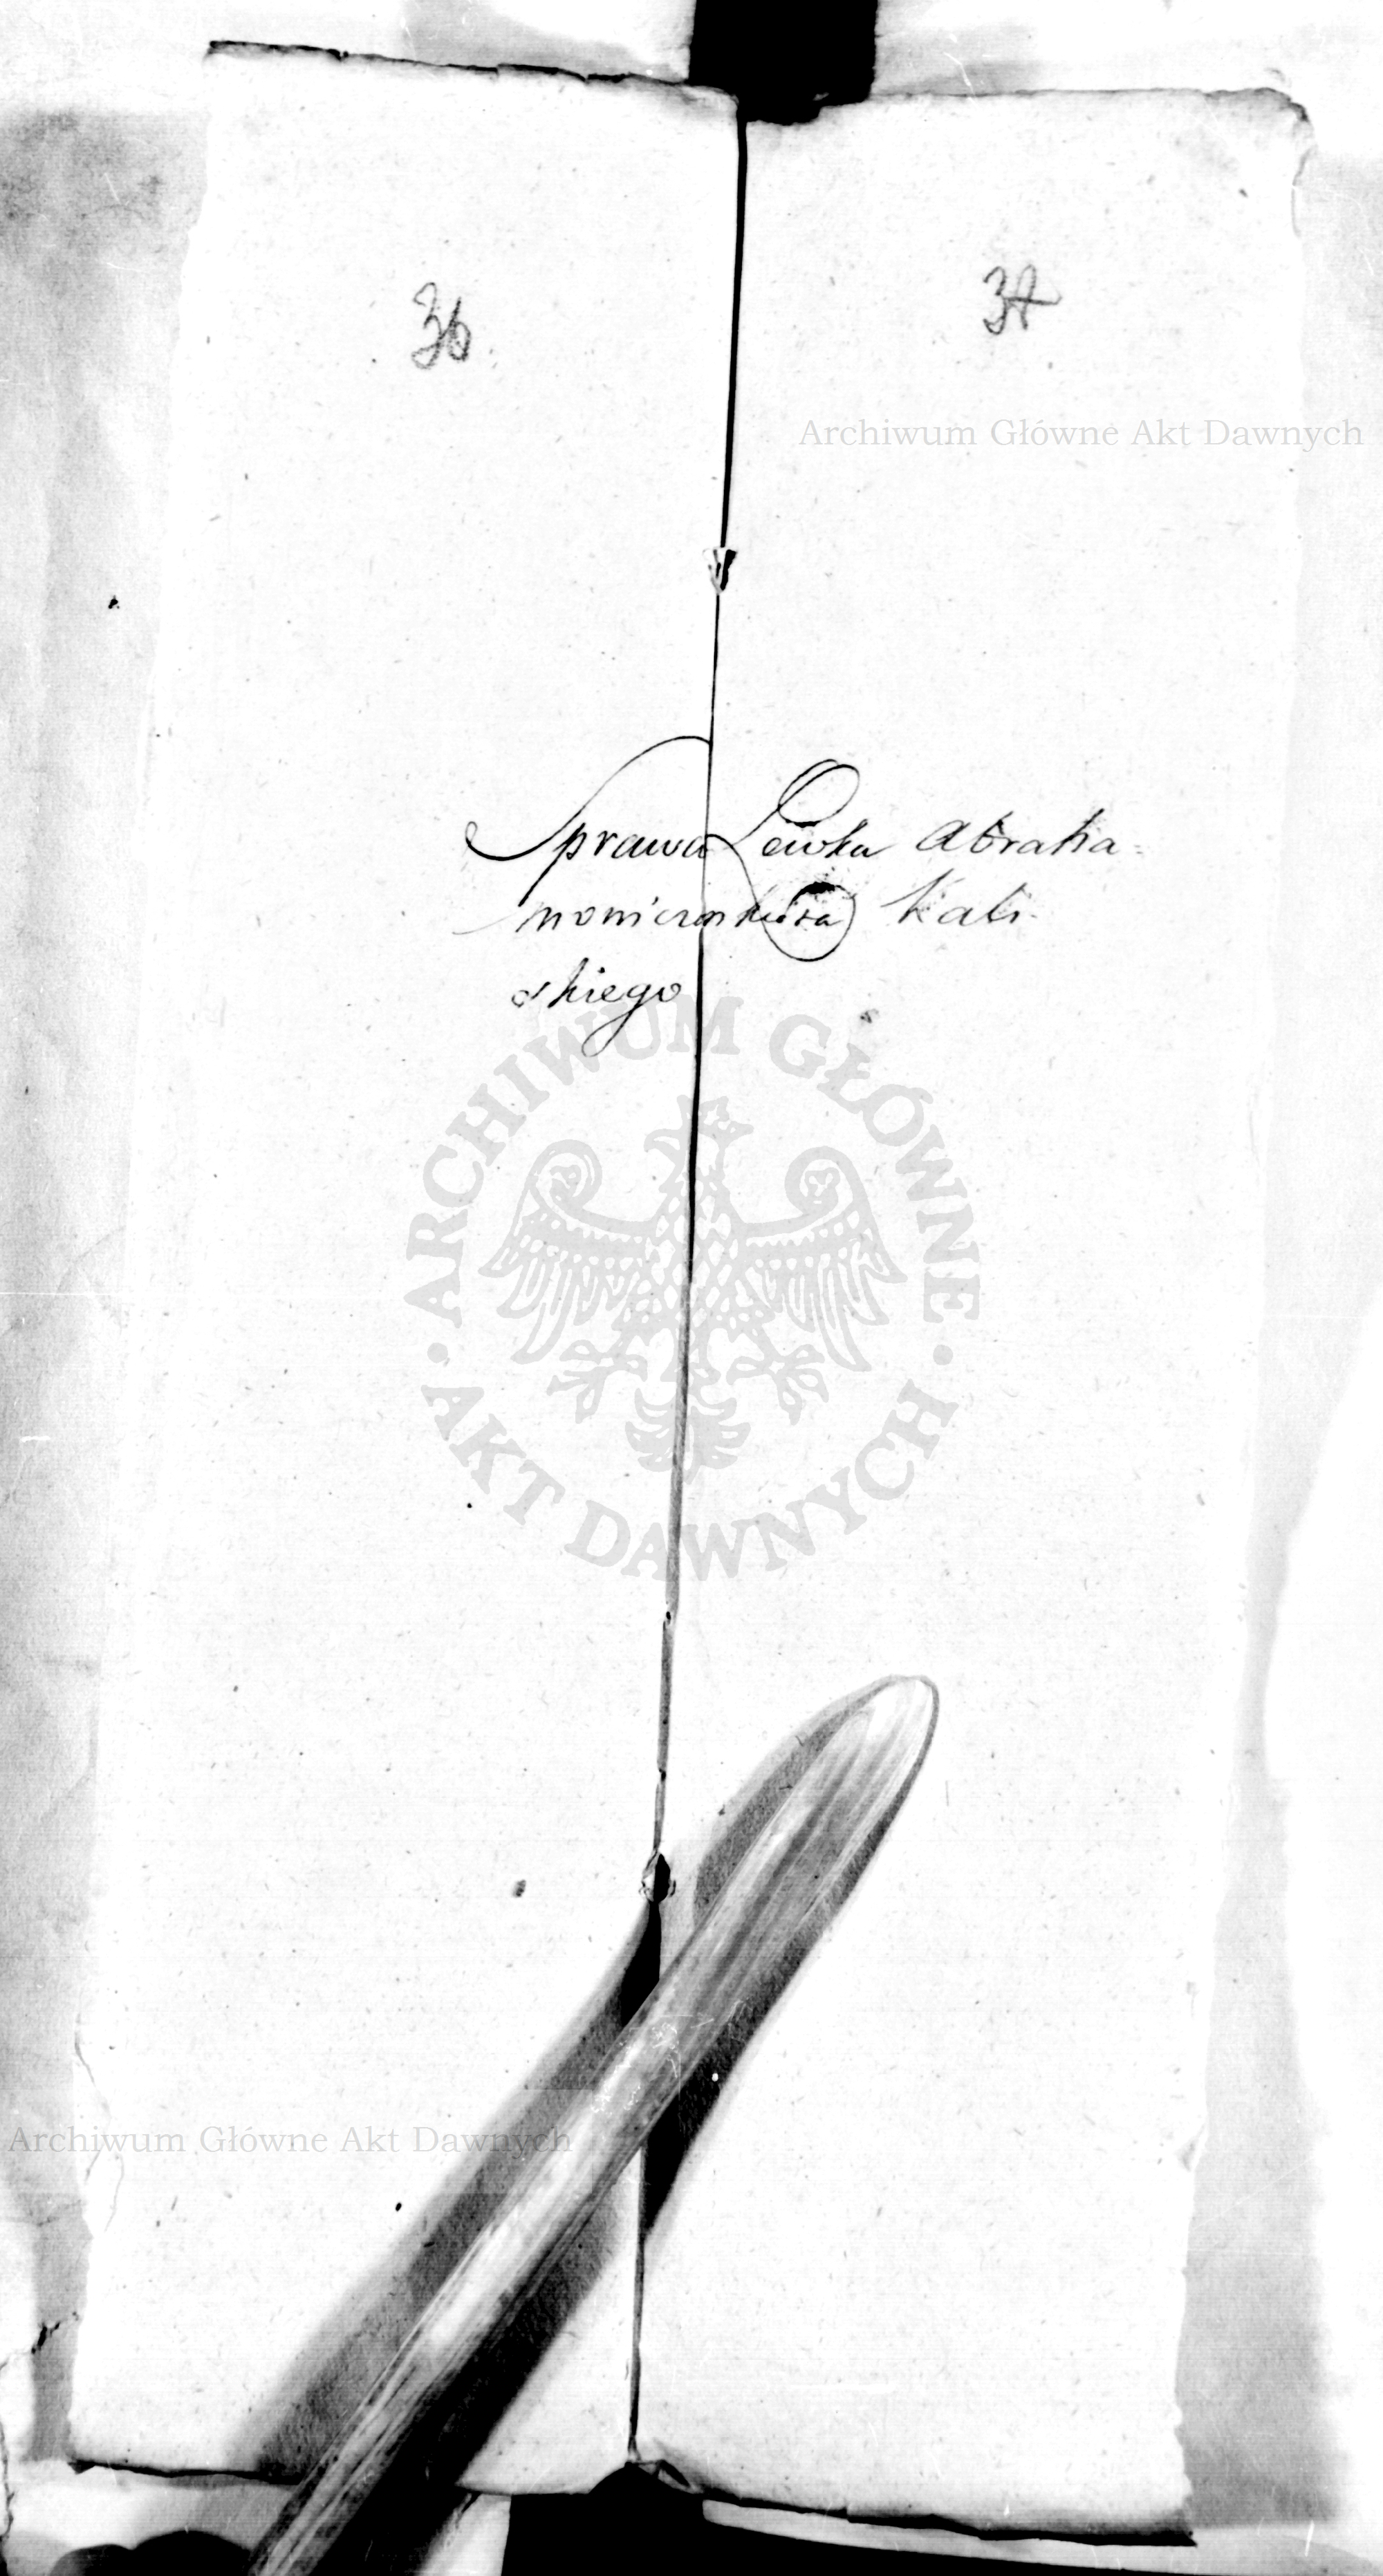 36
37
Archiwum Główne Akt Dawnych
Sprawa Lewka Abraha=
skiego
ARCHIWUM GŁÓWNE
AKT DAWNYCH
Archiwum Główne Akt Dawnych